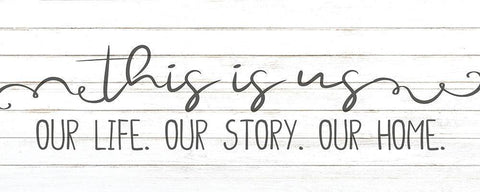 this is us
OUR LIFE. OUR STORY. OUR HOME.